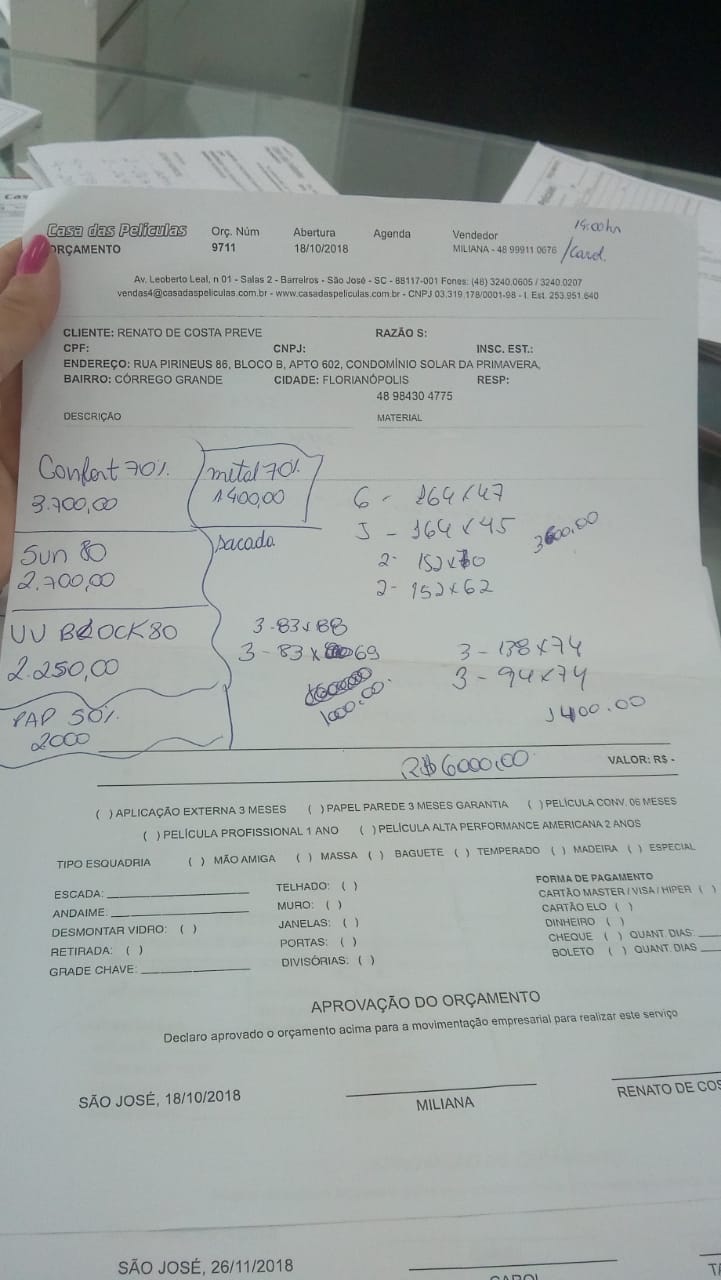 Casa das Películas
ORÇAMENTO
Orç. Núm
9711
Abertura
18/10/2018
Agenda
Vendedor
MILIANA - 48 99911 0676
/Carol.
Av. Leoberto Leal, n 01 - Salas 2 - Barreiros - São José - SC - 88117-001 Fones: (48) 3240.0605 / 3240.0207
vendas4@casadaspeliculas.com.br - www.casadaspeliculas.com.br - CNPJ 03.319.178/0001-98 - I. Est. 253.951.640
CLIENTE: RENATO DE COSTA PREVE RAZÃO S:
CPF: CNPJ: INSC. EST.:
ENDEREÇO: RUA PIRINEUS 86, BLOCO B, APTO 602, CONDOMÍNIO SOLAR DA PRIMAVERA,
BAIRRO: CÓRREGO GRANDE CIDADE: FLORIANÓPOLIS RESP:
48 98430 4775
DESCRIÇÃO MATERIAL
Confort 70%.
3.700,00
metal 70%.
1400,00
sacada
Sun 80
2.700,00
UV BLOCK 80
2.250,00
PAP 50%.
2000
6 - 164x47
5 - 164x45
2 -
2 - 152x62
3 - 83x88
3 - 83x 69
1000,00.
3 - 138x74
3 - 94x74
1400.00
R$6000,00
VALOR: R$ -
( ) APLICAÇÃO EXTERNA 3 MESES ( ) PAPEL PAREDE 3 MESES GARANTIA ( ) PELÍCULA CONV. 06 MESES
( ) PELÍCULA PROFISSIONAL 1 ANO ( ) PELÍCULA ALTA PERFORMANCE AMERICANA 2 ANOS
TIPO ESQUADRIA ( ) MÃO AMIGA ( ) MASSA ( ) BAGUETE ( ) TEMPERADO ( ) MADEIRA ( ) ESPECIAL
ESCADA:
ANDAIME:
DESMONTAR VIDRO: ( )
RETIRADA: ( )
GRADE CHAVE:
TELHADO: ( )
MURO: ( )
JANELAS: ( )
PORTAS: ( )
DIVISÓRIAS: ( )
FORMA DE PAGAMENTO
CARTÃO MASTER / VISA / HIPER ( )
CARTÃO ELO ( )
DINHEIRO ( )
CHEQUE ( ) QUANT. DIAS:
BOLETO ( ) QUANT. DIAS
APROVAÇÃO DO ORÇAMENTO
Declaro aprovado o orçamento acima para a movimentação empresarial para realizar este serviço
SÃO JOSÉ, 18/10/2018
MILIANA
RENATO DE COS
SÃO JOSÉ, 26/11/2018
CAROL